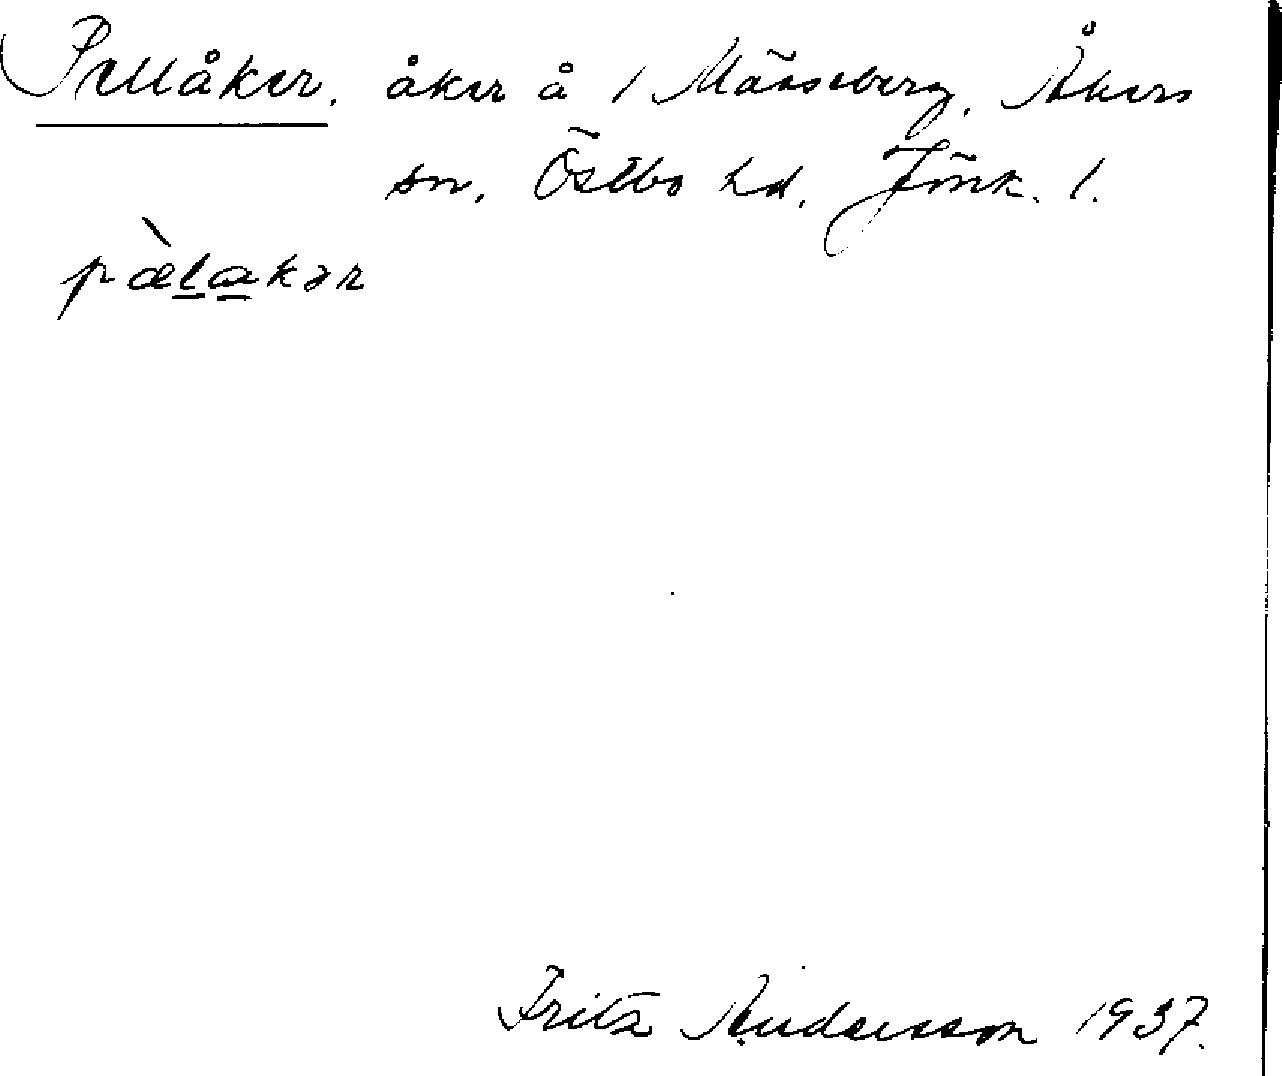 Pellåker, åker å 1 Mässeberg, Åkers
sn, Östbo hd, Jönk. l.
pæ̀lakər
Fritz Andersson 1937.